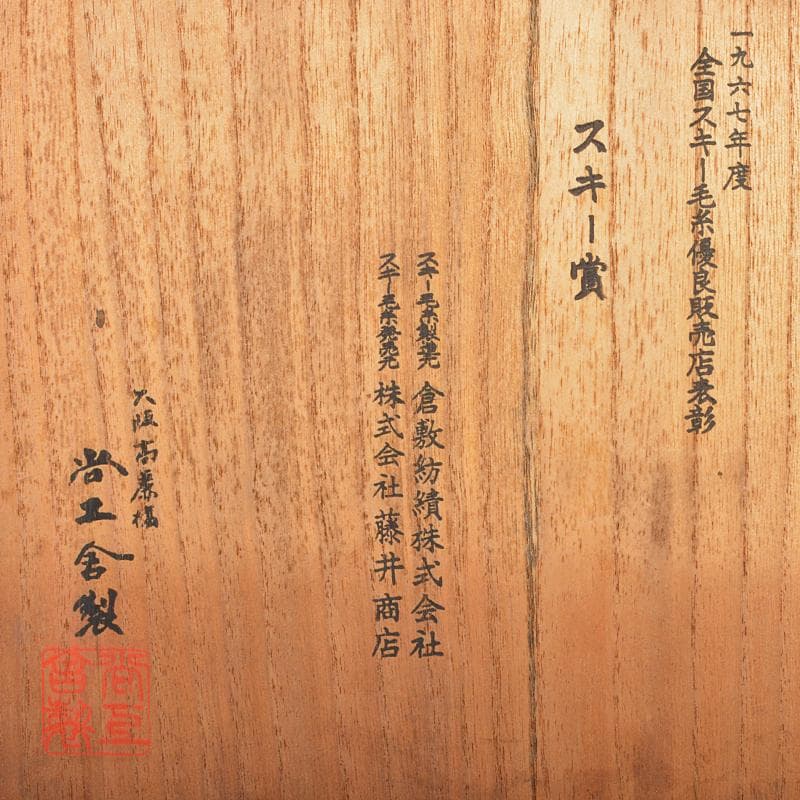 一九六七年度
全国スキー毛糸優良販売店表彰
スキー賞
スキー毛糸製造元 倉敷紡績株式会社
スキー毛糸発売元 株式会社 藤井商店
大阪高麗橋
尚工舎製
尚工舎製